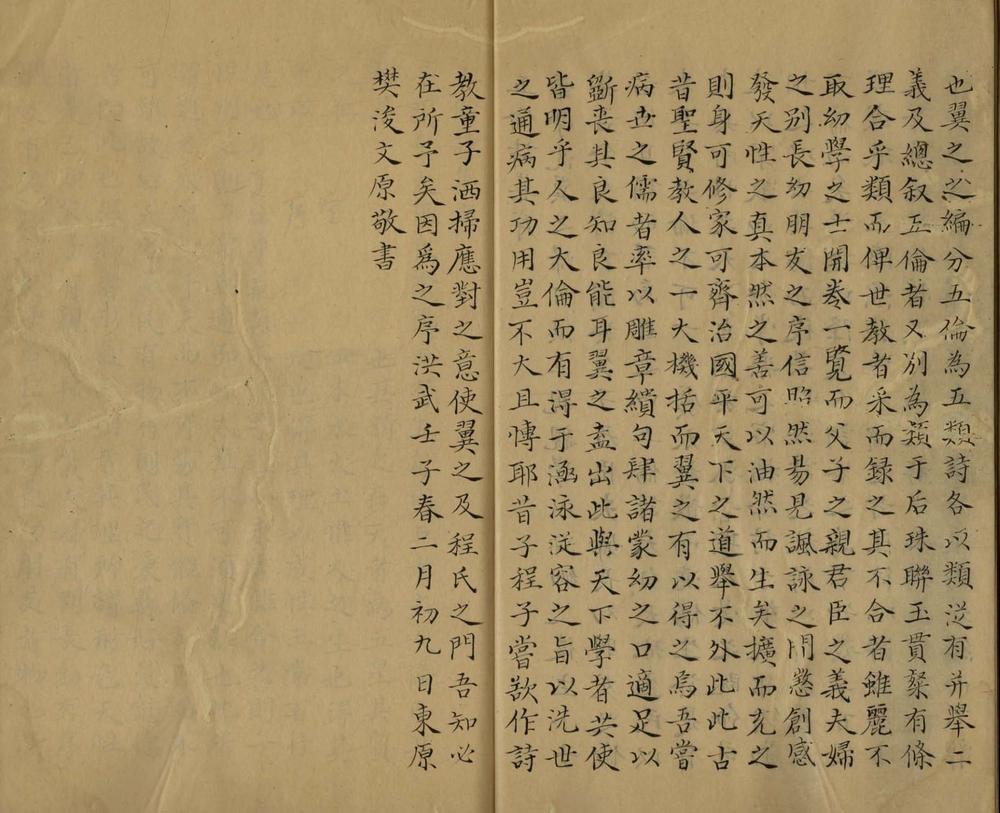 也翼之之編分五倫為五類詩各以類從有并舉二
義及總叙五倫者又別為類于后珠聯玉貫粲有條
理合乎類而俾世教者采而録之其不合者雖麗不
取幼學之士開卷一覽而父子之親君臣之義夫婦
之別長幼朋友之序信照然昜見諷詠之間懲創感
發天性之真本然之善可以油然而生矣擴而充之
則身可修家可齊治國平天下之道舉不外此此古
昔聖賢教人之一大機括而翼之有以得之烏吾嘗
病世之儒者率以雕章繢句肆諸蒙幼之口適足以
斷丧其良知良能耳翼之盍出此與天下學者共使
皆明乎人之大倫而有得于涵泳從容之旨以洗世
之通病其功用豈不大且愽耶昔子程子嘗欲作詩
教童子洒掃應對之意使翼之及程氏之門吾知必
在所予矣因爲之序洪武壬子春二月初九日東原
樊浚文原敬書